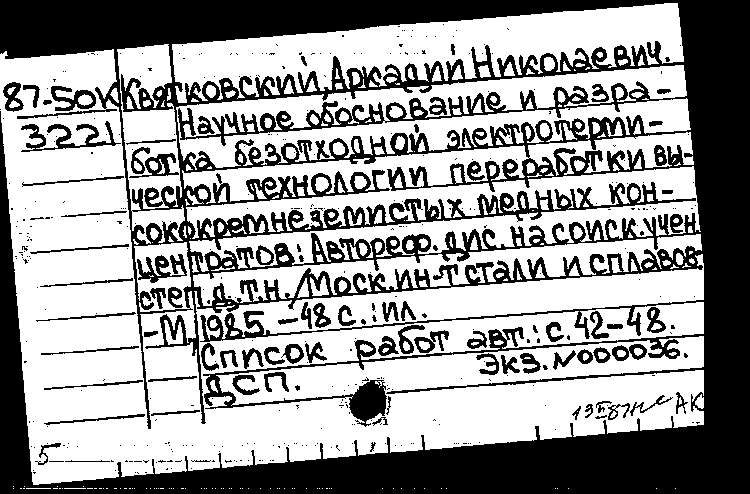 87-50К Квятковский, Аркадий Николаевич.
3221 Научное обоснование и разра-
ботка безотходной электротерми-
ческой технологии переработки вы-
сококремнеземистых медных кон-
центратов: Автореф. дис. на соиск. учен.
степ. д.т.н. /Моск. ин-т стали и сплавов.
-М., 1985. -48 с.: ил.
Список работ авт.: с. 42-48.
ДСП. Экз. №000036.
АК
5